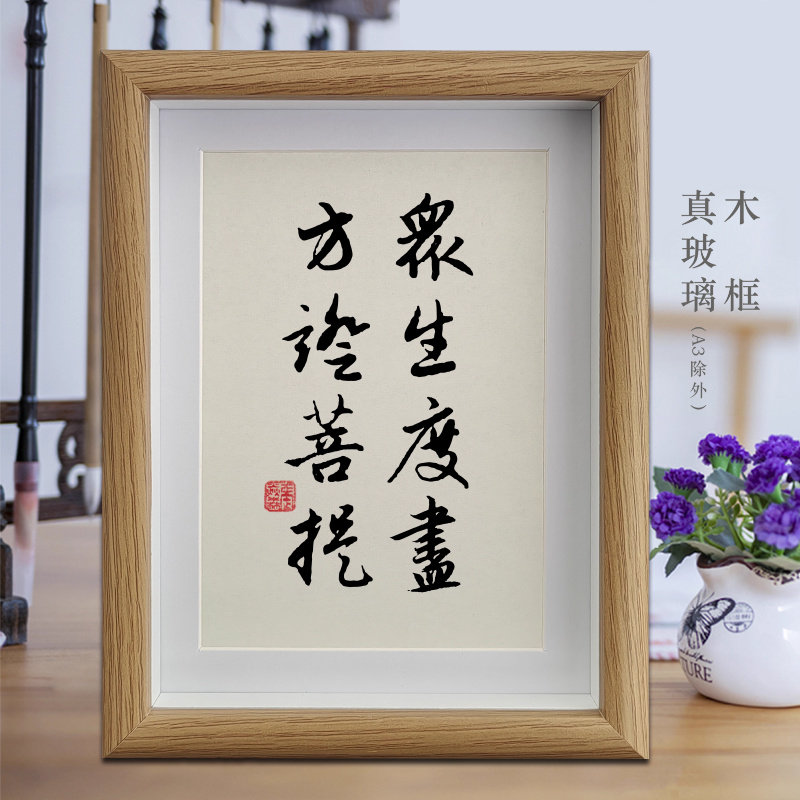 眾生度盡
方證菩提
木框
真玻璃
(A3除外)
TURE